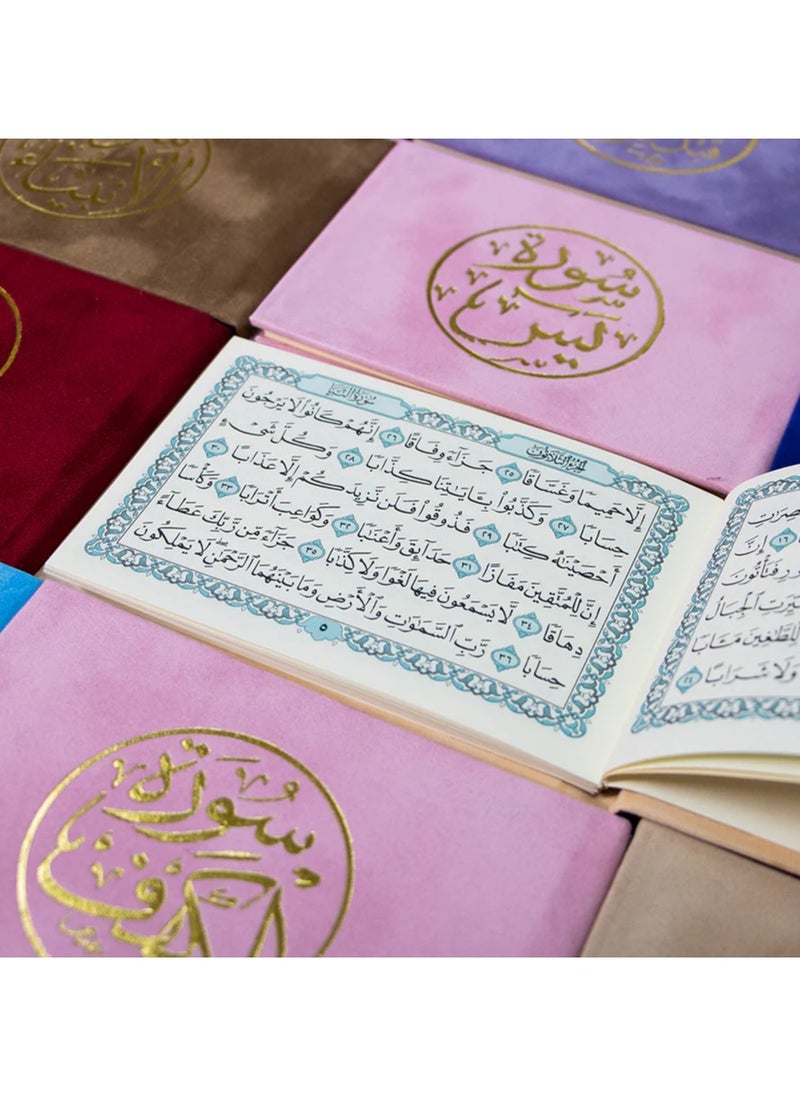 سُورَة
يس
الجزء الثلاثون
سورة النبإ
إِلَّا حَمِيمًا وَغَسَّاقًا ٢٥ جَزَآءً وِفَاقًا ٢٦ إِنَّهُمْ كَانُوا۟ لَا يَرْجُونَ
حِسَابًا ٢٧ وَكَذَّبُوا۟ بِـَٔايَـٰتِنَا كِذَّابًا ٢٨ وَكُلَّ شَىْءٍ
أَحْصَيْنَـٰهُ كِتَـٰبًا ٢٩ فَذُوقُوا۟ فَلَن نَّزِيدَكُمْ إِلَّا عَذَابًا ٣٠
إِنَّ لِلْمُتَّقِينَ مَفَازًا ٣١ حَدَآئِقَ وَأَعْنَـٰبًا ٣٢ وَكَوَاعِبَ أَتْرَابًا ٣٣ وَكَأْسًا
دِهَاقًا ٣٤ لَّا يَسْمَعُونَ فِيهَا لَغْوًا وَلَا كِذَّٰبًا ٣٥ جَزَآءً مِّن رَّبِّكَ عَطَآءً
حِسَابًا ٣٦ رَّبِّ ٱلسَّمَـٰوَٰتِ وَٱلْأَرْضِ وَمَا بَيْنَهُمَا ٱلرَّحْمَـٰنِ ۖ لَا يَمْلِكُونَ
٥
١٦ إِنَّ
فَتَأْتُونَ
ٱلْجِبَالُ
لِّلطَّـٰغِينَ مَـَٔابًا
وَلَا شَرَابًا ٢٤
سورة
الكهف